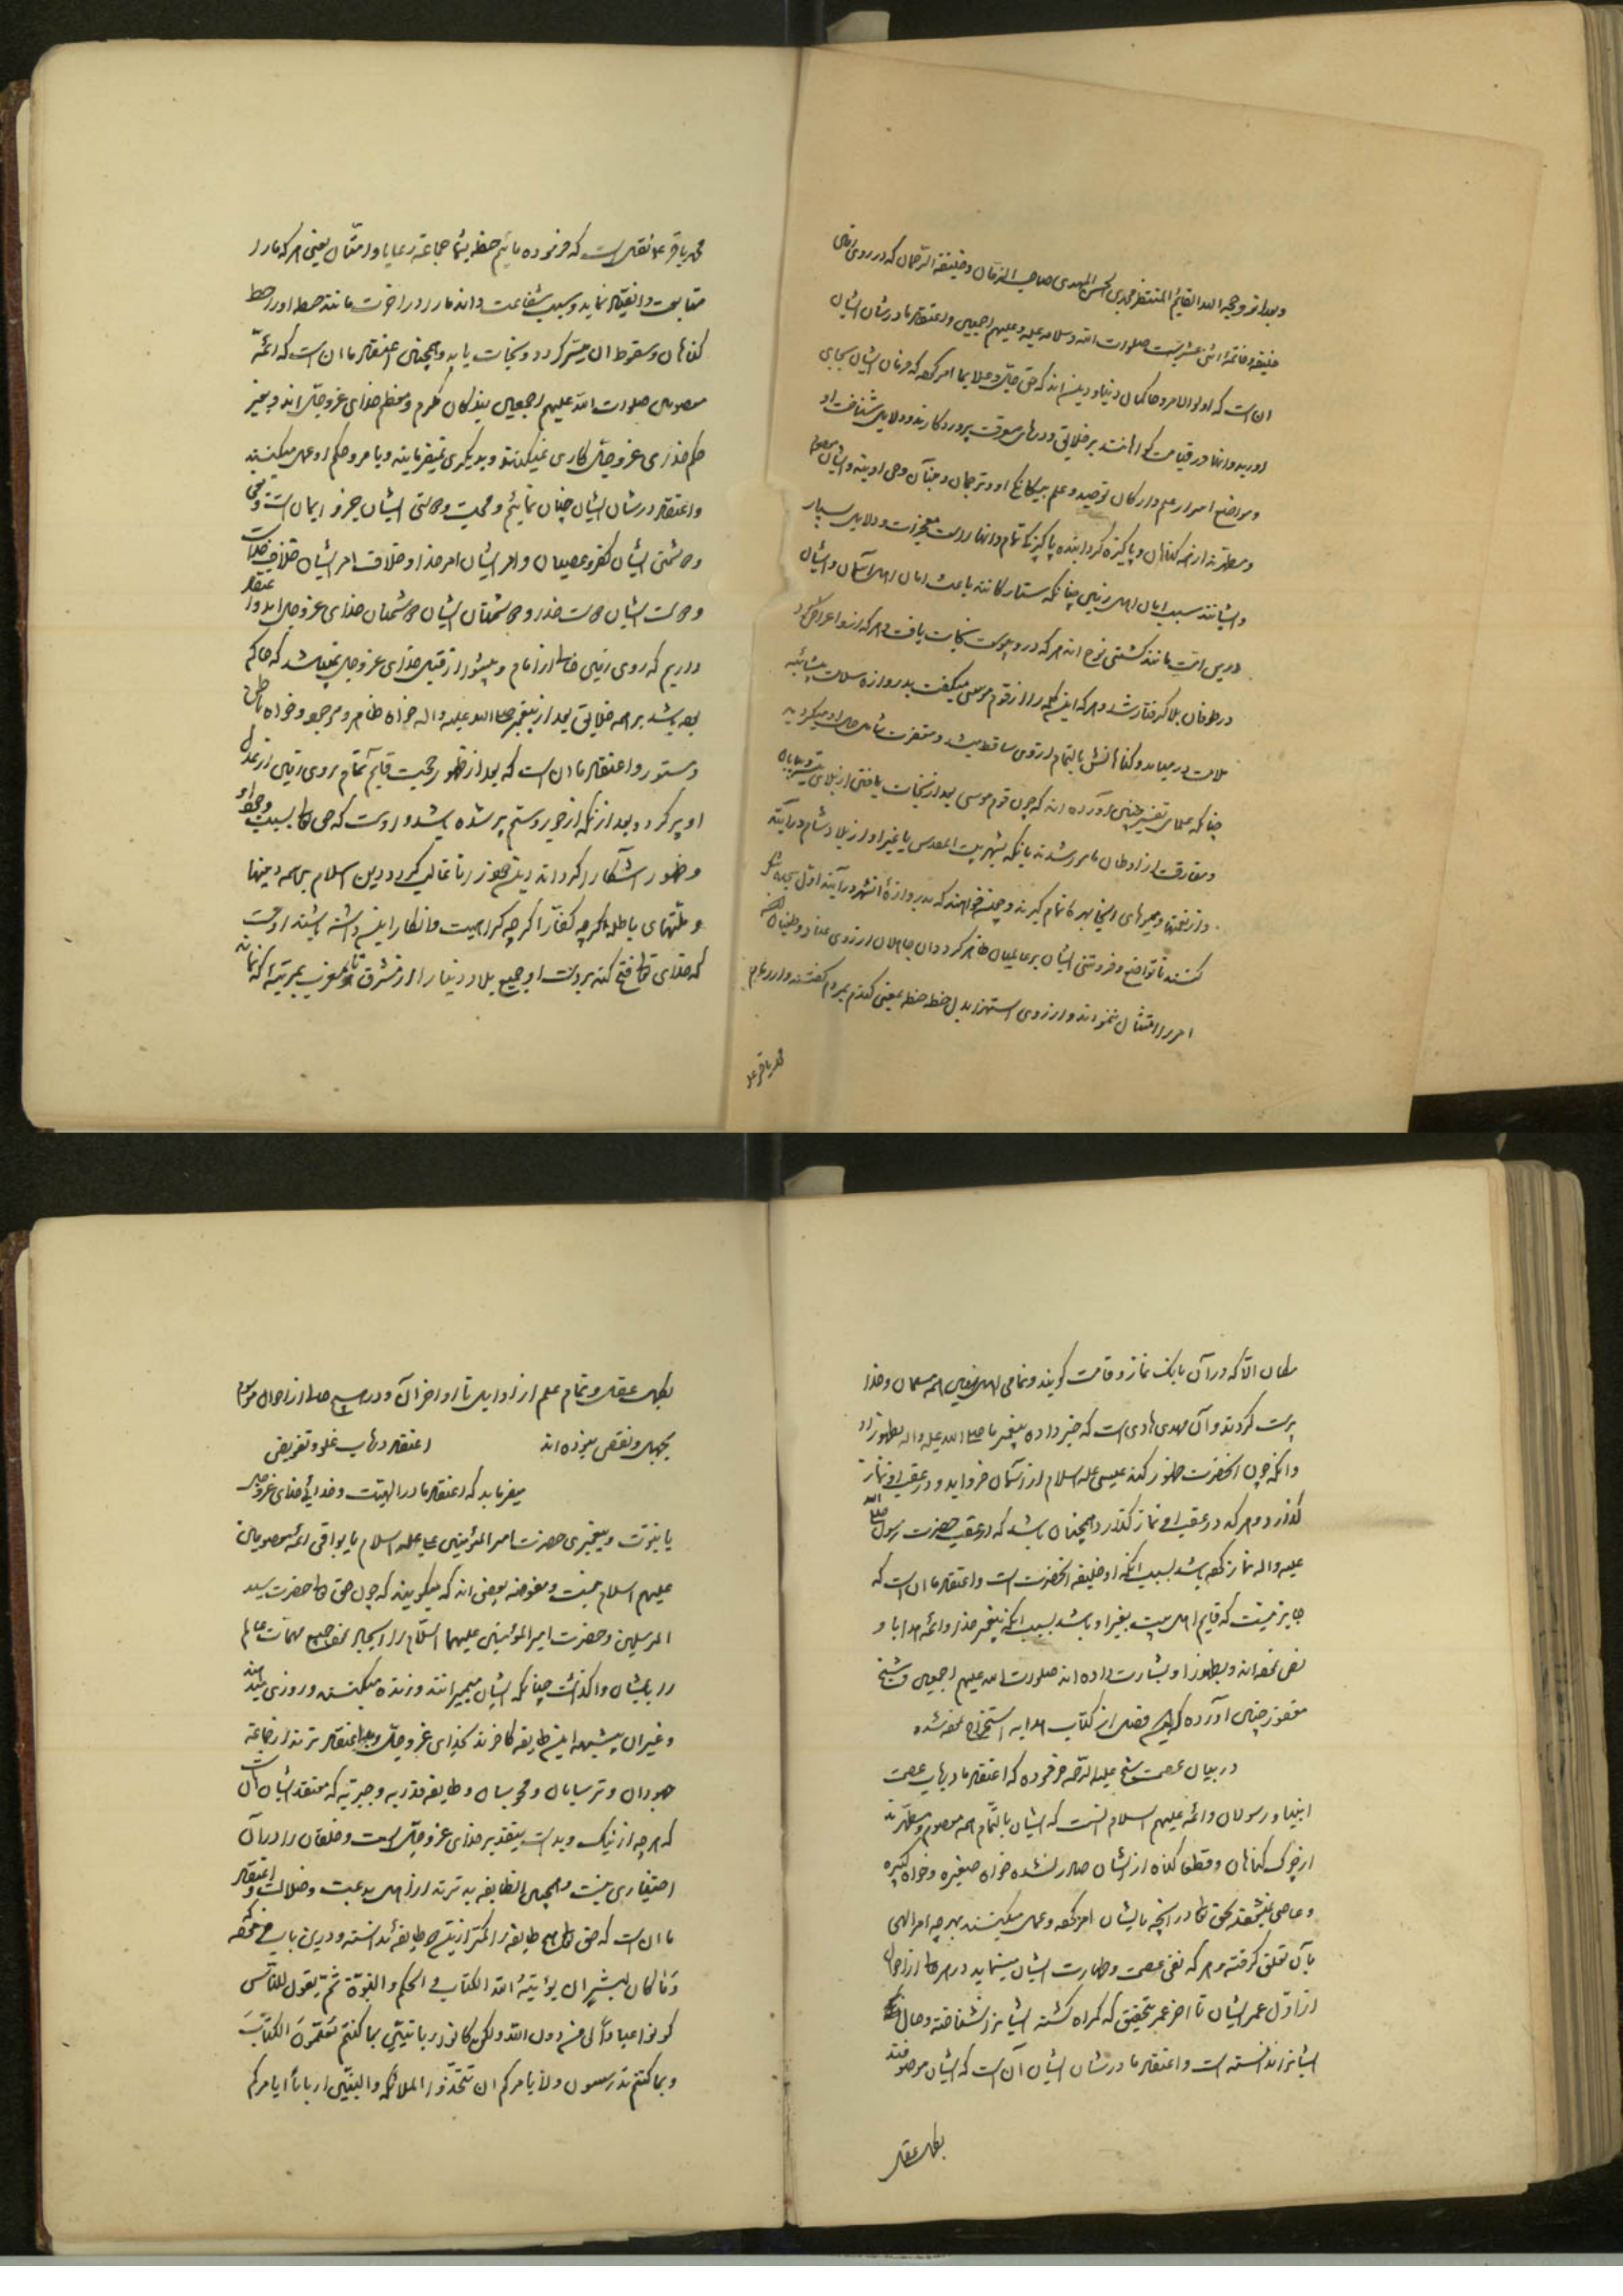 وبعد از او حجة الله القائم المنتظر محمد بن الحسن المهدی صاحب الزمان وخلیفة الرحمان که در روی زمین
خلیفه وخاتمه اثنی عشریست صلوات الله وسلامه علیه وعلیهم اجمعین واعتقاد ما در شان ایشان
ان است که اولو الامر وحاکمان دنیا ودین اند که حق جل وعلا بما امر کرده که فرمان ایشان بجای
اورید وانها در قیامت گواهانند بر خلایق ودرهای معرفت پروردگارند ودلایل شناخت او
ومواضع اسرار علم وارکان توحید وعلم یگانگی او وترجمان وحی اویند وایشان معصوم
ومطهرند از همه گناهان وپاکیزه گردانیده پاکیزگی تمام وانها راست معجزات ودلایل بسیار
وایشانند سبب امان اهل زمین چنانکه ستارگانند باعث امان اهل آسمان وایشان
درین امت مانند کشتی نوح اند هر که در او پیوست نجات یافت وهر که از او اعراض کرد
در طوفان بلا گرفتار شد وهر که این کلمه را از قوم موسی میگفت بدروازه سلامت بی شائبه
ملامت در میامد وگناهانش بالتمام از وی ساقط میشد ومغفرت شامل حال او میگردید
چنانکه علمای تفسیر چنین آورده اند که چون قوم موسی بعد از نجات یافتن از بلای تیه وبیابان
ومفارقت از اوطان مامور شدند بانکه بشهر بیت المقدس یا غیر او از بلاد شام در آیند
واز نعمتها ومیوهای اینجا بهره تمام گیرند وچنین خواهند که بدروازه انشهر در آیند اول سجده شکر
کنند تا تواضع وفروتنی ایشان بر عالمیان ظاهر گردد ان جاهلان از روی عناد وطغیان
امر را امتثال ننمودند واز روی استهزا بدل حطه حنطه بمعنی گندم بمردم گفتند واز امام
محمد باقر علیه
محمد باقر ع نقل است که فرموده مائیم حطه شما جماعة رعایا وامتان یعنی هر که ما را
متابعت وانقیاد نماید وسبب شفاعت داند ما را در اخرت مانند حطه اورا حط
گناهان وسقوط ان میسر گردد ونجات یابد وهمچنین اعتقاد ما ان است که ائمه
معصومین صلوات الله علیهم اجمعین بندگان مکرم ومعظم خدای عز وجل اند وبغیر
حکم خدای عز وجل کاری نمیکنند وبدیگری نمیفرمایند وبامر وحکم او عمل میکنند
واعتقاد در شان ایشان چنان نمائیم ومحبت ودوستی ایشان جزو ایمان است
ودشمنی ایشان کفر وعصیان وامر ایشان امر خدا وخلاف امر ایشان خلاف خداست
ودوست ایشان دوست خدا ودشمنان ایشان دشمنان خدای عز وجل اند واعتقاد
داریم که روی زمین خالی از امام وپیشوا از قبل خدای عز وجل نمیباشد که حاکم
بوده باشد بر همه خلایق بعد از پیغمبر صلی الله علیه واله خواه ظاهر ومرجع وخواه باطن
ومستور واعتقاد ما ان است که بعد از ظهور حجت قایم تمام روی زمین از عدل
او پر گردد بعد ازانکه از جور وستم پر شده باشد واوست که حق تعالی بسبب وجود او
وظهور آشکارا گرداند دین خود را تا غالب گردد دین اسلام بر همه دینها
وملتهای باطله اگرچه کفار اگرچه کراهیت وانکار این داشته باشند اوست
که خدای تعالی فتح کند بر دست او جمیع بلاد دنیا را از مشرق تا مغرب بمرتبه که نماند
مکان الا که در آن بانک نماز وقامت گویند وتمامی اهل زمین همه مسلمان وخدا
پرست گردند وآن مهدی هادی است که خبر داده پیغمبر ما صلی الله علیه واله بظهور او
وانکه چون انحضرت ظهور کند عیسی علیه السلام از آسمان فرود اید ودر عقب او نماز
گذارد وهر که در عقب او نماز گذارد همچنان باشد که در عقب حضرت رسول صلی الله
علیه واله نماز کرده باشد بسبب انکه او خلیفه انحضرت است واعتقاد ما ان است که
جایز نیست که قایم اهل بیت بغیر او باشد بسبب انکه پیغمبر خدا وائمه هدا باو
نص نموده اند وبظهور او بشارت داده اند صلوات الله علیهم اجمعین وشیخ
مغفور چنین آورده که این فصل از کتاب هدایه استخراج نموده شده
در بیان عصمت شیخ علیه الرحمه فرموده که اعتقاد ما در باب عصمت
انبیا ورسولان وائمه علیهم السلام انست که ایشان بالتمام همه معصوم ومطهرند
از چرک گناهان وقطعا گناه از ایشان صادر نشده خواه صغیره وخواه کبیره
وعاصی نمیشوند بحق تعالی در انچه بایشان امر کرده وعمل میکنند بهر چه امر الهی
بآن تعلق گرفته وهر که نفی عصمت وطهارت ایشان مینماید در هر حال از احوال
از اول عمر ایشان تا اخر عمر بتحقیق که گمراه گشته ایشانرا نشناخته وحال
ایشانرا ندانسته است واعتقاد ما در شان ایشان آن است که ایشان موصوفند
بکمال عقل
بکمال عقل وتمام علم از اوایل تا اواخر آن ودر هیچ حال از احوال موسوم
بجهل ونقص نبوده اند اعتقاد در باب غلو وتفویض
میفرماید که اعتقاد ما در الهیت وخدائی خدای عز وجل
یا نبوت وپیغمبری حضرت امیر المؤمنین علی علیه السلام یا بواقی ائمه معصومین
علیهم السلام نیست ومفوضه بعضی اند که میگویند که چون حق تعالی حضرت سید
المرسلین وحضرت امیر المؤمنین علیهما السلام را ایجاد نمود جمیع مهمات عالم
را بایشان واگذاشت چنانکه ایشان میمیرانند وزنده میکنند وروزی میدهند
وغیر ان بیشبهه این طایفه کافرند بخدای عز وجل وبد اعتقاد ترند از جماعة
جهودان وترسایان ومجوسان وطایفه قدریه وجبریه که معتقد ایشان آن است
که هر چه از نیک وبد است بتقدیر خدای عز وجل است وخلقان را در آن
اختیاری نیست وهمچنین این طایفه بدترند از اهل بدعت وضلالت واعتقاد
ما ان است که حق تعالی هیچ طایفه را کمتر ازین طایفه ندانسته ودرین باب فرموده
وما کان لبشر ان یؤتیه الله الکتاب والحکم والنبوة ثم یقول للناس
کونوا عبادا لی من دون الله ولکن کونوا ربانیین بما کنتم تعلمون الکتاب
وبما کنتم تدرسون ولا یامرکم ان تتخذوا الملائکة والنبیین اربابا ایامرکم